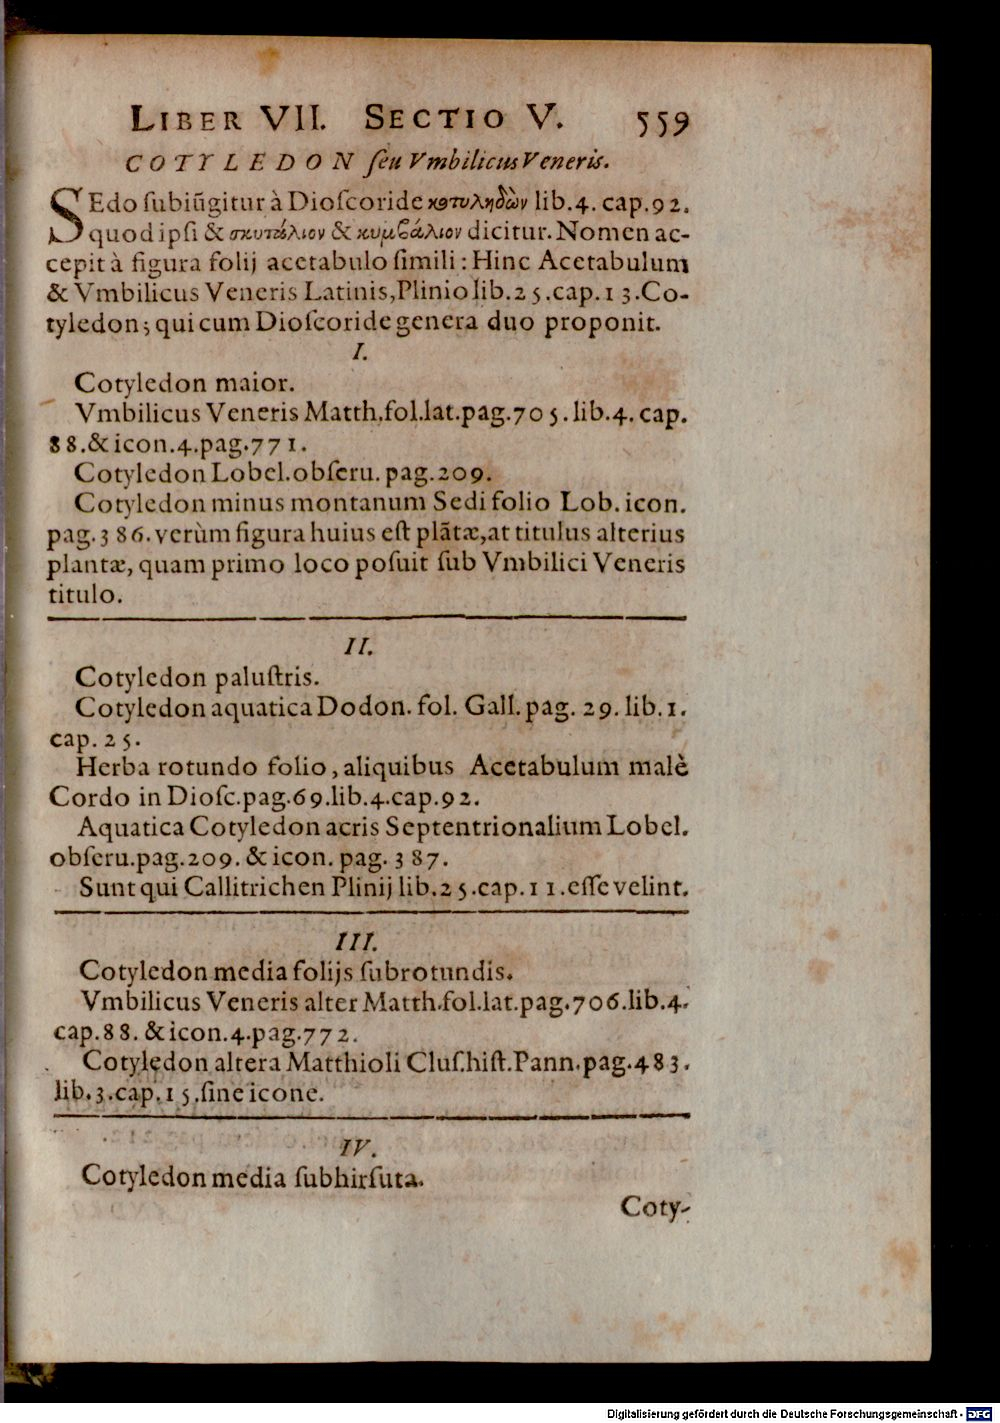 LIBER VII. SECTIO V. 559
COTYLEDON ſeu Vmbilicus Veneris.
SEdo ſubiũgitur à Dioſcoride κοτυληδὼν lib.4. cap.92.
quod ipſi & σκυτάλιον & κυμβάλιον dicitur. Nomen ac-
cepit à figura folij acetabulo ſimili: Hinc Acetabulum
& Vmbilicus Veneris Latinis, Plinio lib.25.cap.13.Co-
tyledon; qui cum Dioſcoride genera duo proponit.
I.
Cotyledon maior.
Vmbilicus Veneris Matth.fol.lat.pag.705.lib.4. cap.
88.& icon.4.pag.771.
Cotyledon Lobel.obſeru. pag.209.
Cotyledon minus montanum Sedi folio Lob. icon.
pag.386. verùm figura huius eſt plãtæ, at titulus alterius
plantæ, quam primo loco poſuit ſub Vmbilici Veneris
titulo.
II.
Cotyledon paluſtris.
Cotyledon aquatica Dodon. fol. Gall. pag. 29. lib.1.
cap. 25.
Herba rotundo folio, aliquibus Acetabulum malè
Cordo in Dioſc.pag.69.lib.4.cap.92.
Aquatica Cotyledon acris Septentrionalium Lobel.
obſeru.pag.209. & icon. pag. 387.
Sunt qui Callitrichen Plinij lib.25.cap.11.eſſe velint.
III.
Cotyledon media folijs ſubrotundis.
Vmbilicus Veneris alter Matth.fol.lat.pag.706.lib.4.
cap.88. & icon.4.pag.772.
Cotyledon altera Matthioli Cluſ.hiſt.Pann.pag.483.
lib.3.cap.15.ſine icone.
IV.
Cotyledon media ſubhirſuta.
Coty-
Digitalisierung gefördert durch die Deutsche Forschungsgemeinschaft - DFG